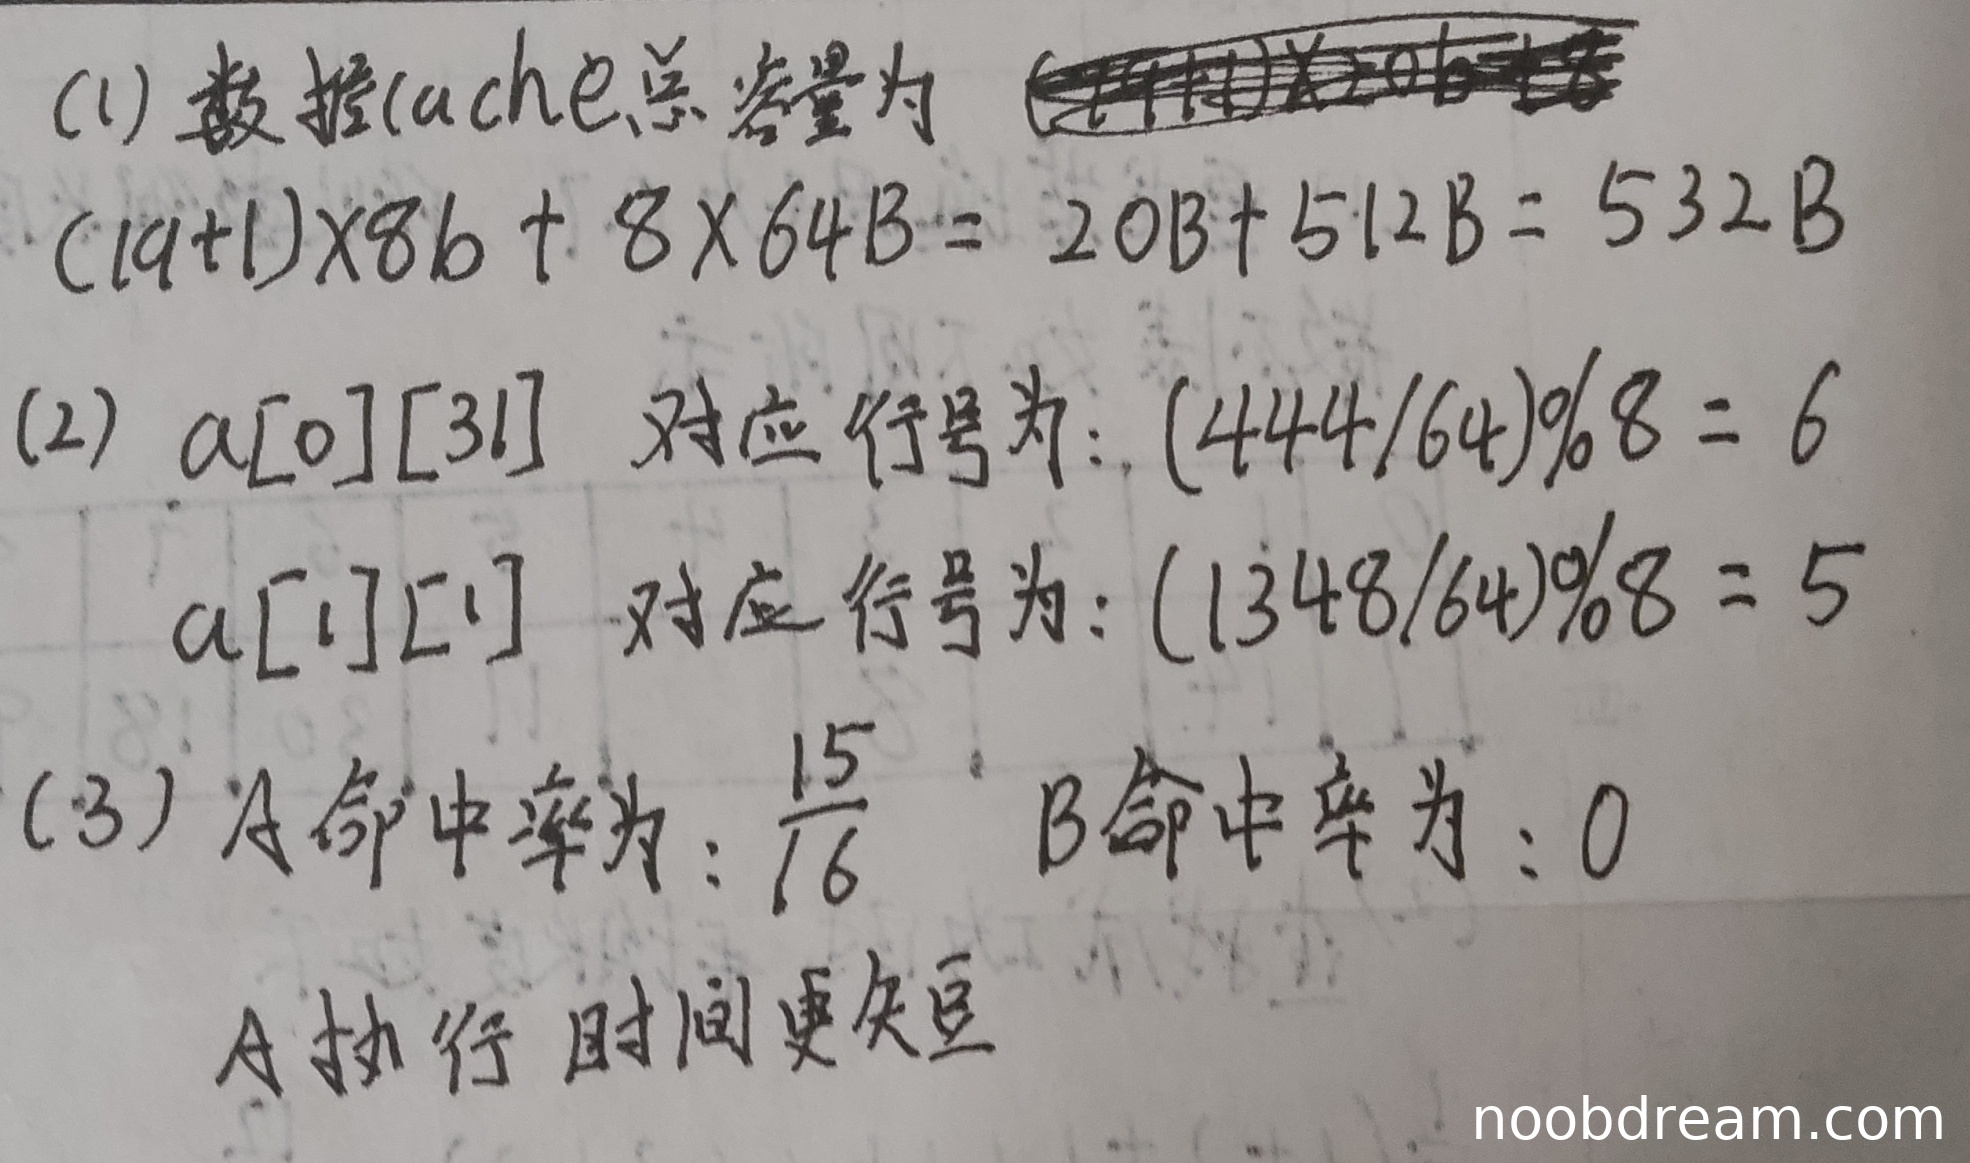 (1) 数据Cache总容量为
(19+1)×8b + 8×64B = 20B+512B = 532B
(2) a[0][31] 对应行号为: (444/64)%8 = 6
a[1][1] 对应行号为: (1348/64)%8 = 5
(3) A命中率为: 15/16 B命中率为: 0
A执行时间更短
noobdream.com